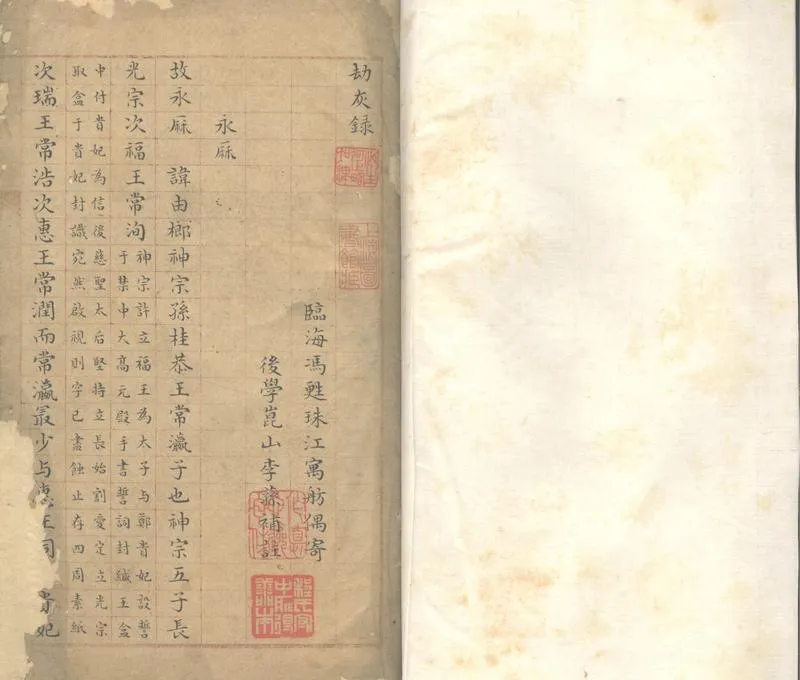 劫灰録
臨海馮甦珠江寓舫偶寄
後學崑山李蓀補註
永厤
故永厤 諱由榔神宗孫桂恭王常瀛子也神宗五子長
光宗次福王常洵神宗許立福王為太子与鄭貴妃設誓
于禁中大高元殿手書誓詞封緘王盒
中付貴妃為信後慈聖太后堅持立長始割愛定立光宗
取盒于貴妃封識宛然啟視則字已盡蝕止存四周素紙
次瑞王常浩次惠王常潤而常瀛最少与惠王同 貴妃